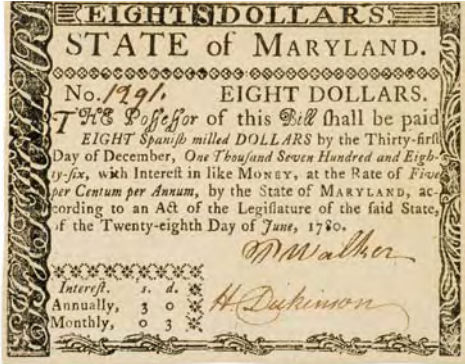 EIGHT DOLLARS.
STATE of MARYLAND.
No. 1291. EIGHT DOLLARS.
THE Poſſeſſor of this Bill ſhall be paid
EIGHT Spaniſh milled DOLLARS by the Thirty-firſt
Day of December, One Thouſand Seven Hundred and Eigh-
ty-ſix, with Intereſt in like MONEY, at the Rate of Five
per Centum per Annum, by the State of MARYLAND, ac-
cording to an Act of the Legiſlature of the ſaid State,
of the Twenty-eighth Day of June, 1780.
Walker
Intereſt. s. d.
H Dickinson
Annually, 3 0
Monthly, 0 3